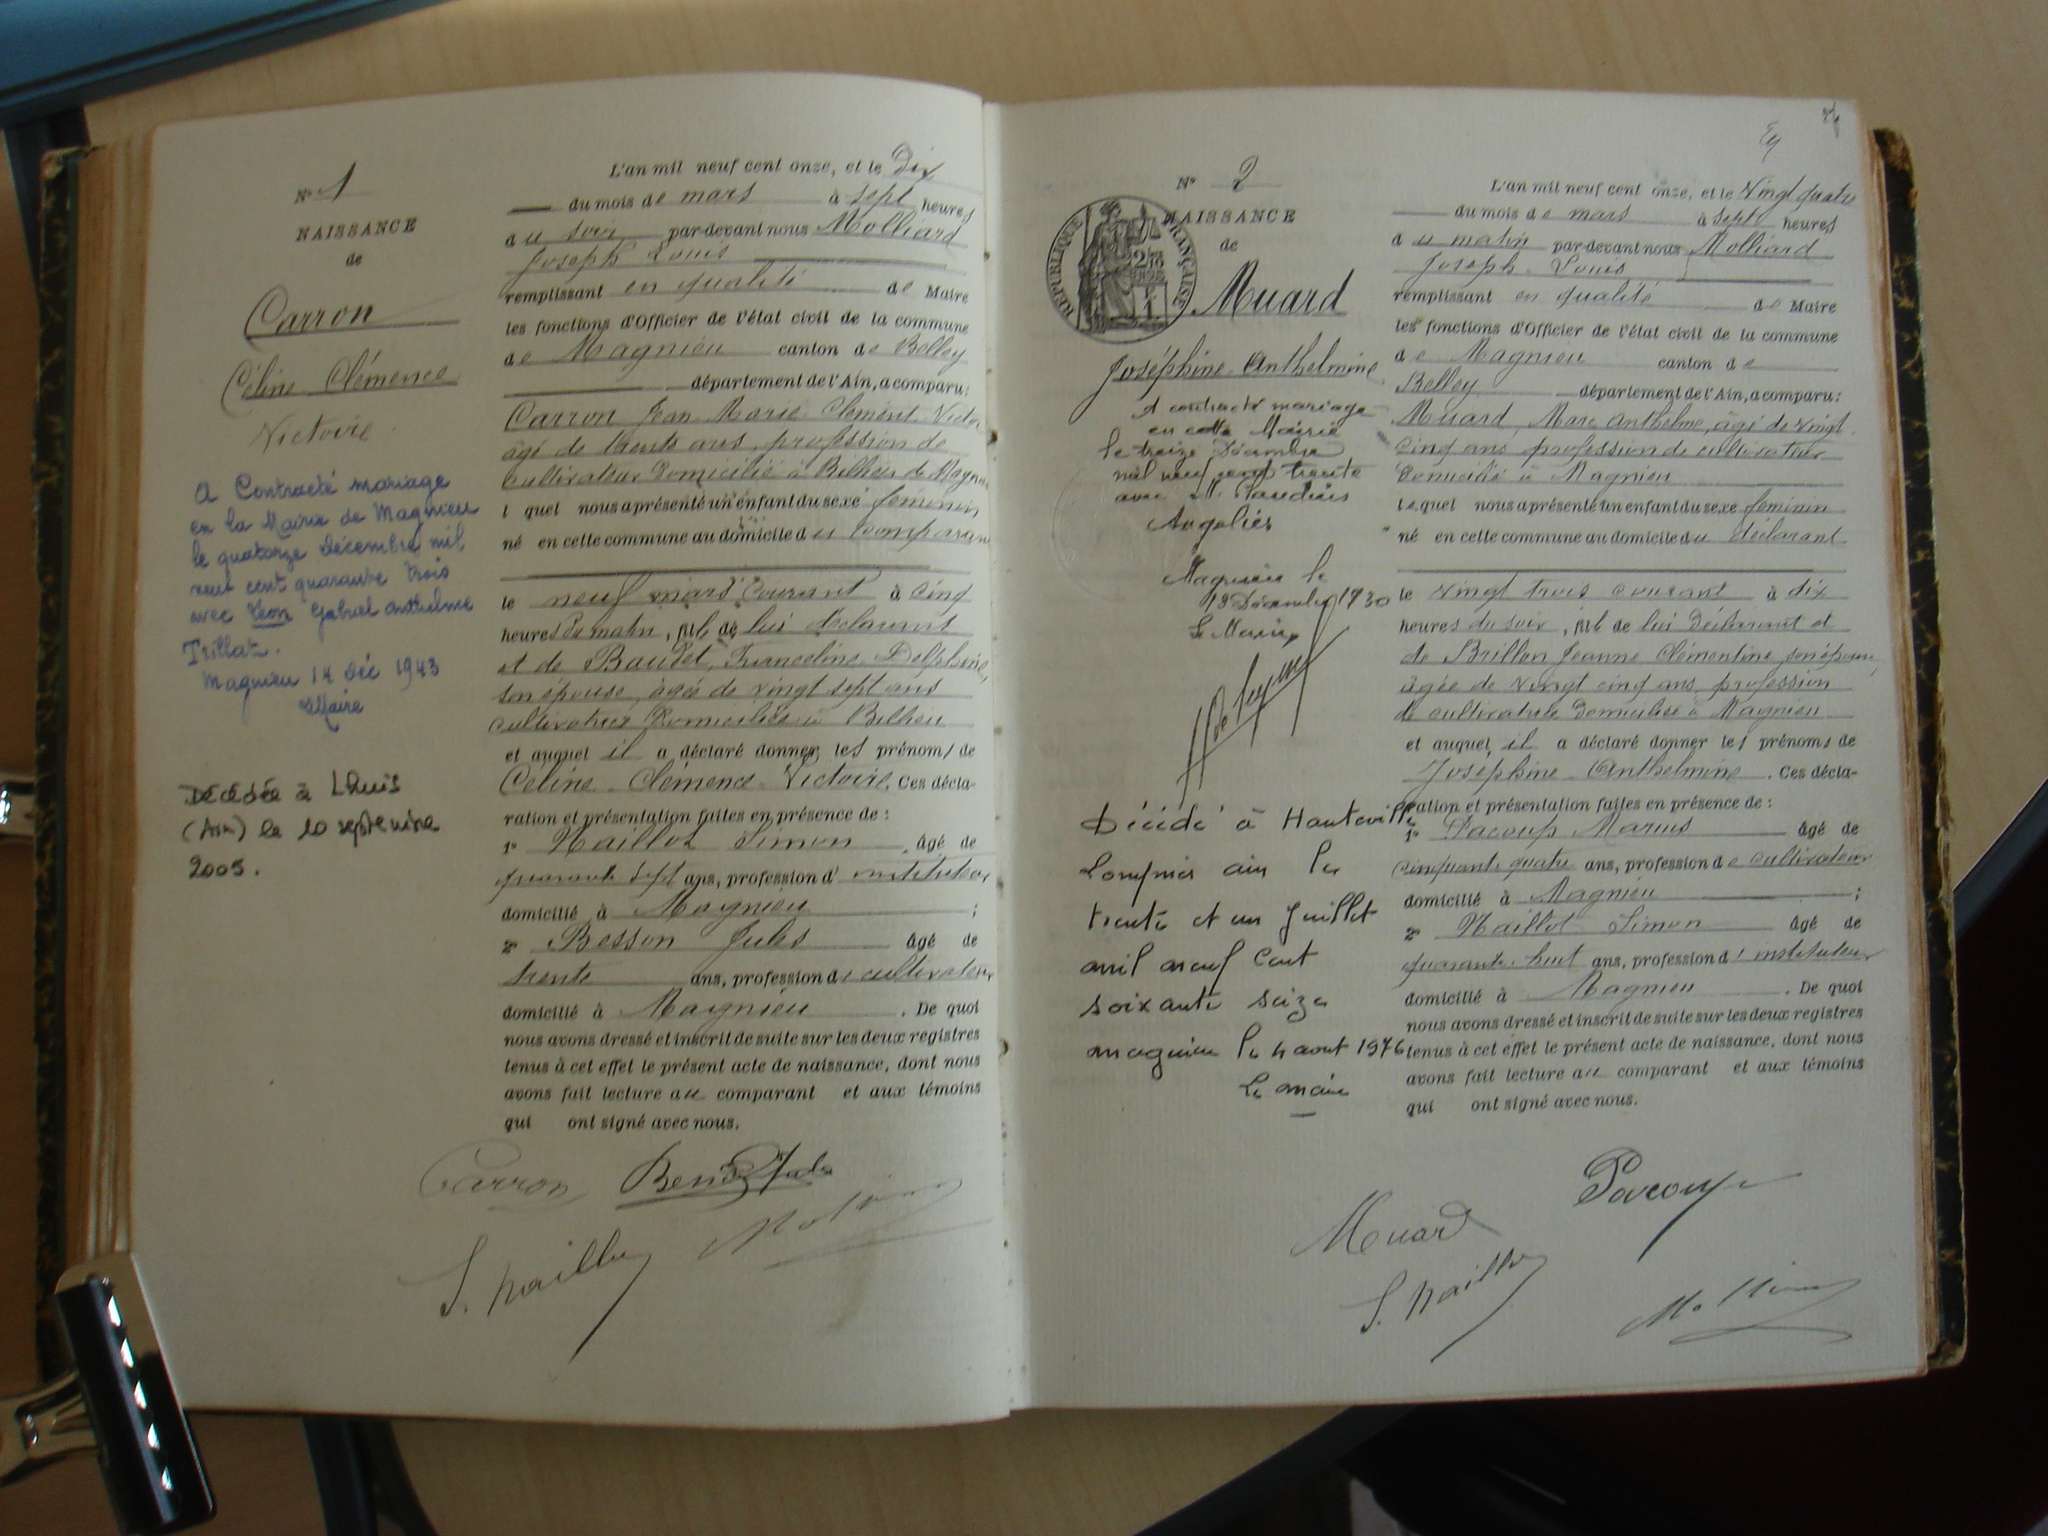 N° 1
NAISSANCE
de
Carron
Céline Clémence
Victoire
A Contracté mariage
en la Mairie de Magnieu
le quatorze décembre mil
neuf cent quarante trois
avec Léon Gabriel Anthelme
Trillat.
Magnieu 14 Déc 1943
Maire
Décédée à Lhuis
(Ain) le 10 septembre
2005.
L'an mil neuf cent onze, et le Dix
du mois de mars à sept heures
du soir par-devant nous Molliard
Joseph Louis
remplissant en qualité de Maire
les fonctions d'Officier de l'état civil de la commune
de Magnieu canton de Belley
département de l'Ain, a comparu:
Carron Jean Marie Clément Victor
âgé de trente ans, profession de
cultivateur Domicilié à Bilhieu de Magnieu
lequel nous a présenté un enfant du sexe féminin
né en cette commune au domicile du comparant
le neuf mars courant à cinq
heures du matin, fils de lui déclarant
et de Baudet, Franceline Delphine,
son épouse, âgée de vingt sept ans
cultivatrice Domiciliés à Bilhieu
et auquel il a déclaré donner les prénoms de
Céline Clémence Victoire. Ces décla-
ration et présentation faites en présence de:
1° Naillod Simon, âgé de
quarante sept ans, profession d'instituteur
domicilié à Magnieu;
2° Besson Jules âgé de
trente ans, profession de cultivateur
domicilié à Magnieu. De quoi
nous avons dressé et inscrit de suite sur les deux registres
tenus à cet effet le présent acte de naissance, dont nous
avons fait lecture au comparant et aux témoins
qui ont signé avec nous.
Carron Besson Jules
S. Naillod
N° 2
NAISSANCE
de
RÉPUBLIQUE FRANÇAISE
Muard
Joséphine Anthelmine
A contracté mariage
en cette Mairie
le treize Décembre
mil neuf cent trente
avec M.
Magnieu le
13 Décembre 1930
Le Maire
Décédé à Hauteville
Lompnes ain le
trente et un juillet
mil neuf cent
soixante seize
magnieu le 4 aout 1976
Le maire
L'an mil neuf cent onze, et le Vingt quatre
du mois de mars à sept heures
du matin par-devant nous Molliard
Joseph Louis
remplissant en qualité de Maire
les fonctions d'Officier de l'état civil de la commune
de Magnieu canton de
Belley département de l'Ain, a comparu:
Muard, Marc Anthelme, âgé de vingt
cinq ans, profession de cultivateur
Domicilié à Magnieu
lequel nous a présenté un enfant du sexe féminin
né en cette commune au domicile du déclarant
le vingt trois courant à dix
heures du soir, fils de lui déclarant et
de Brillon Jeanne Clémentine, son épouse,
âgée de vingt cinq ans, profession
de cultivatrice Domiciliés à Magnieu
et auquel il a déclaré donner les prénoms de
Joséphine Anthelmine. Ces décla-
ration et présentation faites en présence de:
1° Pacoup Marius âgé de
cinquante quatre ans, profession de cultivateur
domicilié à Magnieu;
2° Naillod Simon âgé de
quarante huit ans, profession d'instituteur
domicilié à Magnieu. De quoi
nous avons dressé et inscrit de suite sur les deux registres
tenus à cet effet le présent acte de naissance, dont nous
avons fait lecture au comparant et aux témoins
qui ont signé avec nous.
Pacoup
Muard
S. Naillod